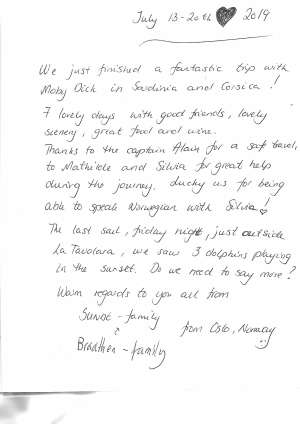 July 13-20th ♥ 2019
We just finished a fantastic trip with
Moby Dick in Sardinia and Corsica!
7 lovely days with good friends, lovely
scenery, great food and wine.
Thanks to the captain Alain for a safe travel,
to Mathilde and Silvia for great help
during the journey. Lucky us for being
able to speak Norwegian with Silvia!
The last sail, friday night, just outside
La Tavolara, we saw 3 dolphins playing
in the sunset. Do we need to say more?
Warm regards to you all from
Sunde - family
&
Braathen - family
from Oslo, Norway
:)